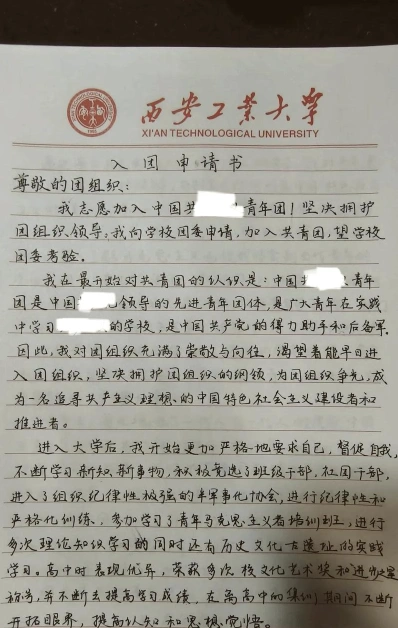 西安工业大学
XI'AN TECHNOLOGICAL UNIVERSITY
入团申请书
尊敬的团组织：
我志愿加入中国共 青年团！坚决拥护
团组织领导，我向学校团委申请，加入共青团，望学校
团委考验。
我在最开始对共青团的认识是：中国 青年
团是中国 领导的先进青年团体，是广大青年在实践
中学习 的学校，是中国共产党的得力助手和后备军。
因此，我对团组织充满了崇敬与向往，渴望着能早日进
入团组织，坚决拥护团组织的纲领，为团组织争光，成
为一名追寻共产主义理想的中国特色社会主义建设者和
推进者。
进入大学后，我开始更加严格地要求自己，督促自我，
不断学习新知新事物，积极竞选了班级干部，社团干部，
进入了组织纪律性极强的半军事化协会，进行纪律性和
严格化训练，参加学习了青年马克思主义者培训班，进行
多次理论知识学习的同时还有历史文化古遗址的实践
学习。高中时表现优异，荣获多次校文化艺术奖和进步之星
称号，并不断去提高学习成绩，在离高中的 期间不断
开拓眼界，提高认知和思想觉悟。